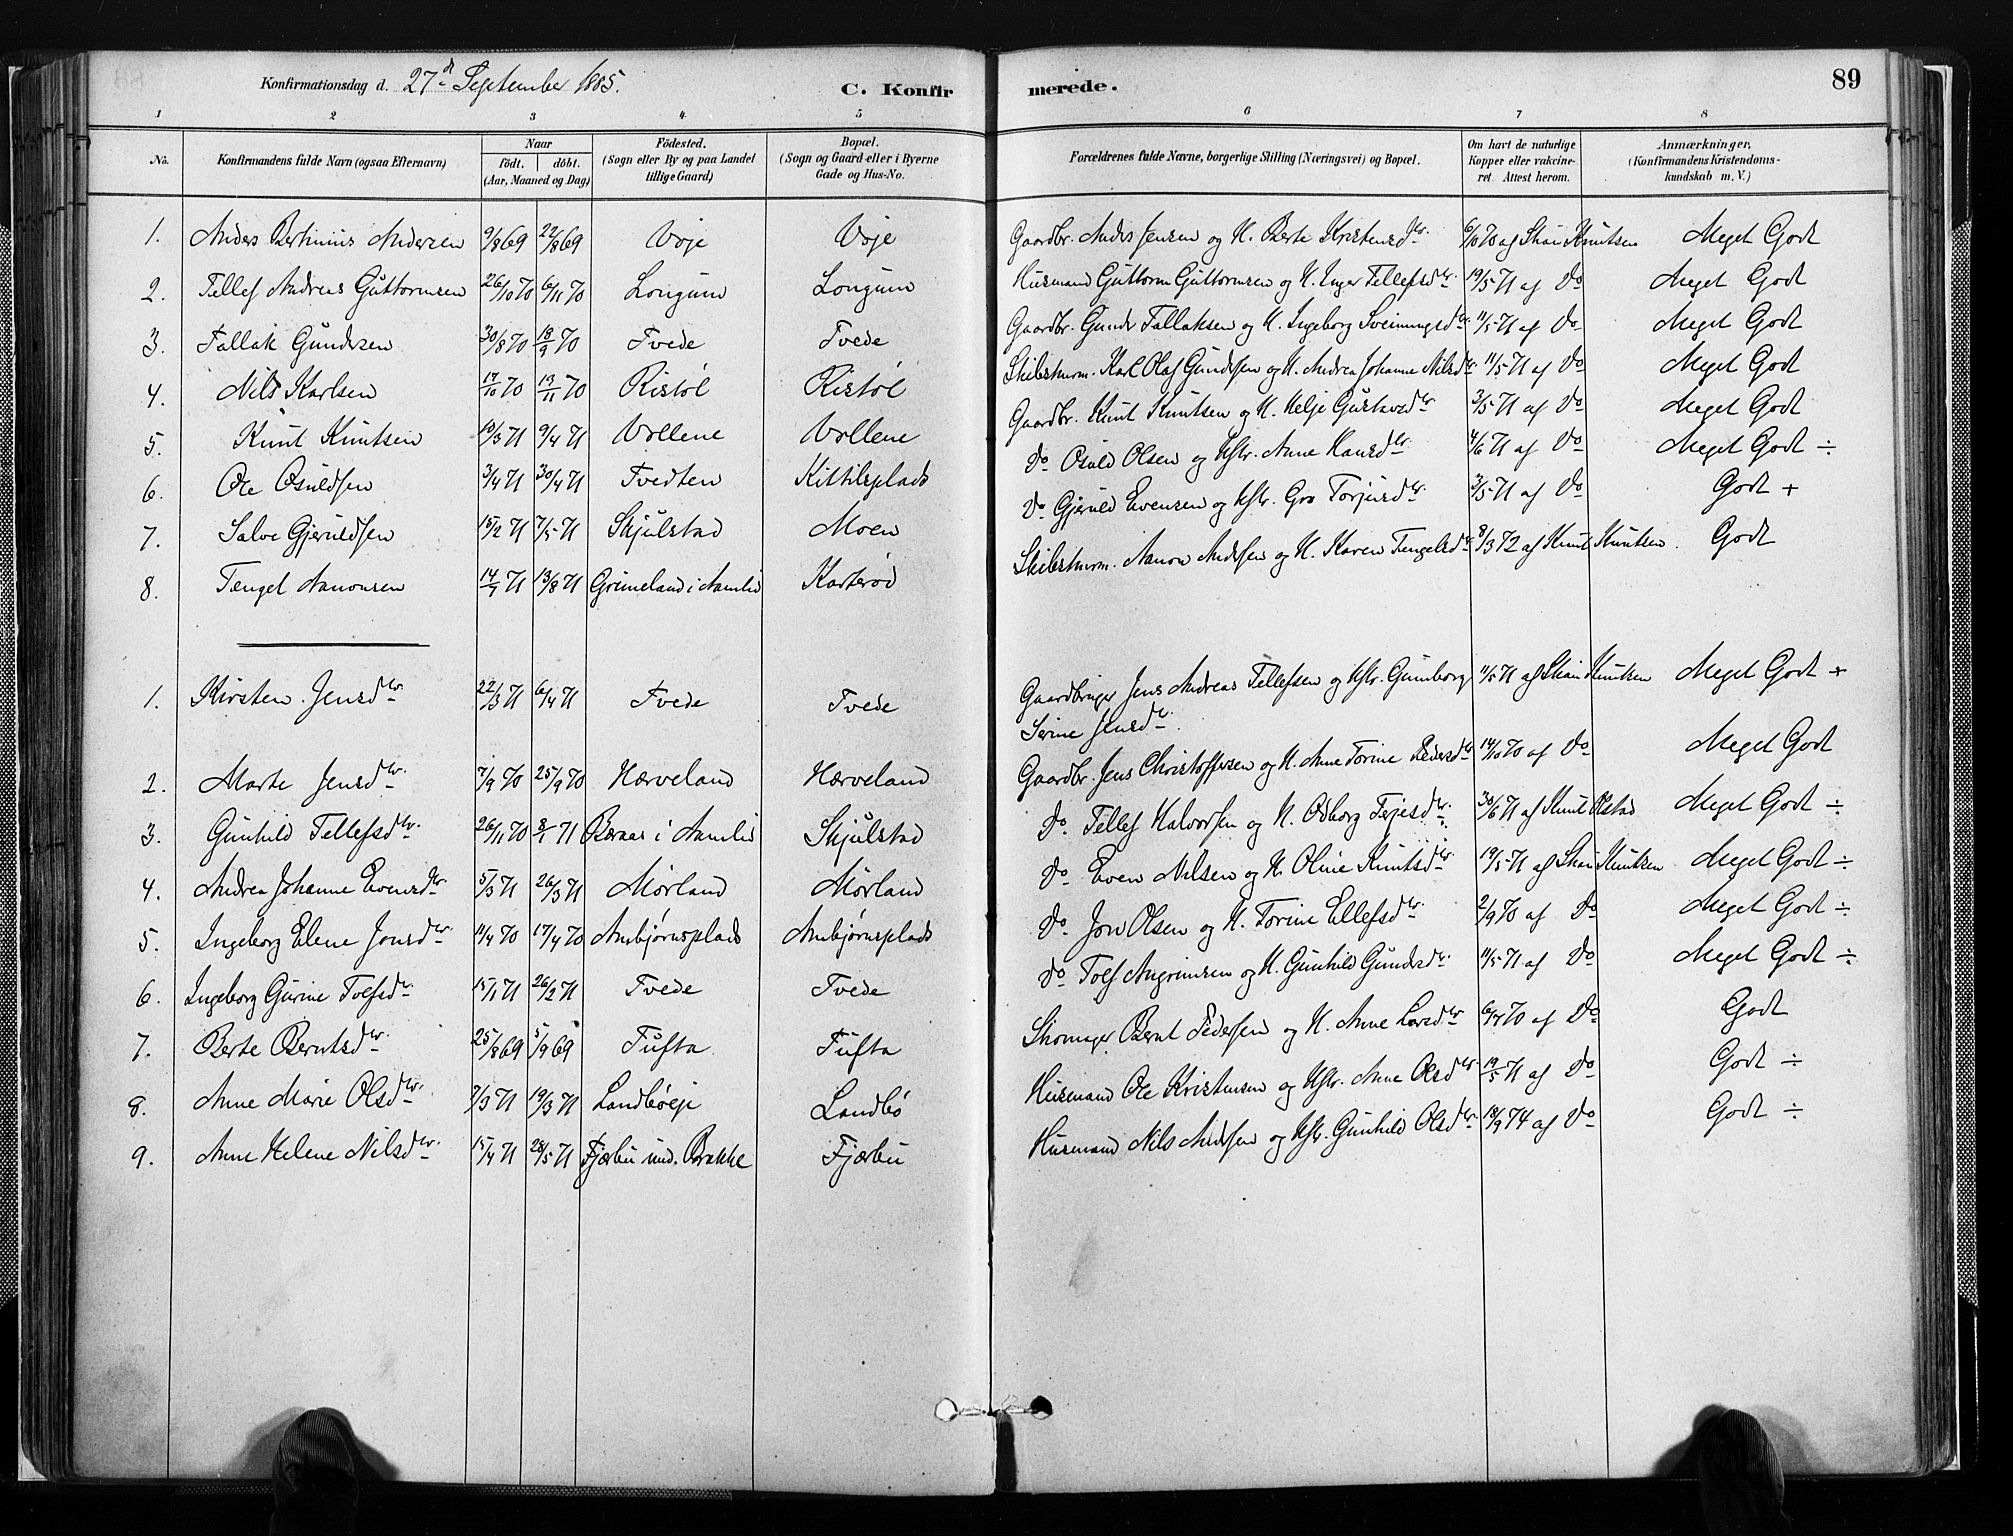 Konfirmationsdag d. 27de September 1885.
C. Konfir
merede.
89
1 2 3 4 5 6 7 8
No.
Konfirmandens fulde Navn (ogsaa Efternavn)
Naar
født. døbt.
(Aar, Maaned og Dag)
Födested.
(Sogn eller By og paa Landet
tillige Gaard)
Bopæl.
(Sogn og Gaard eller i Byerne
Gade og Hus-No.
Forældrenes fulde Navne, borgerlige Stilling (Næringsvei) og Bopæl.
Om havt de naturlige
Kopper eller vakcine-
ret. Attest herom.
Anmærkninger,
(Konfirmandens Kristendoms-
kundskab m. V.)
1. Anders Bertinius Andersen 9/8 69 22/8 69 Voje Voje Gaardbr. Anders Jensen og H. Berte Kristensdtr. 6/10 70 af Skan Knutsen Meget Godt
2. Tellef Andreas Guttormsen 26/10 70 6/11 70 Longum Longum Husmand Guttorm Guttormsen og H. Inger Tellefsdtr. 19/5 71 af Do Meget Godt
3. Tallak Gundersen 30/8 70 18/9 70 Tvede Tvede Gaardbr. Gunder Tallaksen og H. Ingeborg Sveinungsdtr. 11/5 71 af Do Meget Godt
4. Nils Karlsen 17/10 70 19/11 70 Ristøl Ristøl Skibstmrm. Karl Olaf Gundersen og H. Andrea Johanne Nilsdtr. 11/5 71 af Do Meget Godt
5. Knut Knutsen 10/3 71 9/4 71 Vollene Vollene Gaardbr. Knut Knutsen og H. Helje Gustavsdtr. 3/5 71 af Do Meget Godt
6. Ole Osuldsen 3/4 71 30/4 71 Tvedten Kittilsplads Do Osuld Olsen og Hstr. Anne Hansdtr. 4/6 71 af Do Meget Godt ÷
7. Salve Gjeruldsen 15/2 71 7/5 71 Skjulstad Moen Do Gjeruld Evensen og Hstr. Gro Torjusdtr. 3/5 71 af Do Godt +
8. Tengel Aanonsen 14/7 71 13/8 71 Grimeland i Aamlid Karterød Skibstmrm. Aanon Andersen og H. Karen Tengelsdtr. 8/3 72 af Knut Knutsen. Godt
1. Kirsten Jensdtr. 22/3 71 6/4 71 Tvede Tvede Gaardbruger Jens Andreas Tellefsen og Hstr. Gunborg 11/5 71 af Skan Knutsen Meget Godt +
Serine Jensdtr.
2. Marte Jensdtr. 7/9 70 25/9 70 Hærveland Hærveland Gaardbr. Jens Christoffersen og H. Anne Torine Pedersdtr. 14/10 70 af Do Meget Godt
3. Gunhild Tellefsdtr. 26/11 70 8/1 71 Beraas i Aamlid Skjulstad Do. Tellef Halvorsen og H. Odborg Terjesdtr. 30/6 71 af Knut Olstad Meget Godt ÷
4. Andrea Johanne Evensdtr. 5/3 71 26/3 71 Mørland Mørland Do Even Nilsen og H. Oline Knutsdtr. 19/5 71 af Skan Knutsen Meget Godt ÷
5. Ingeborg Elene Jonsdtr. 11/4 70 17/4 70 Ambjørnsplads Ambjørnsplads Do Jon Olsen og H. Torine Ellefsdtr. 2/9 70 af Do Meget Godt ÷
6. Ingeborg Gurine Tolfsdtr. 15/1 71 26/2 71 Tvede Tvede Do Tolf Angrimsen og H. Gunhild Gundersdtr. 11/5 71 af Do Meget Godt ÷
7. Berte Berntsdtr. 25/8 69 5/9 69 Tufta Tufta Skomager Bernt Pedersen og H. Anne Larsdtr. 6/7 70 af Do Godt
8. Anne Marie Olsdtr. 7/3 71 19/3 71 Landbøeje Landbø Husmand Ole Kristensen og Hstr. Anne Olsdtr. 19/5 71 af Do Godt ÷
9. Anne Helene Nilsdtr. 15/4 71 28/5 71 Fjærbu und. Brække Fjærbu Husmand Nils Andersen og Hstr. Gunhild Olsdtr. 18/9 74 af Do Godt ÷